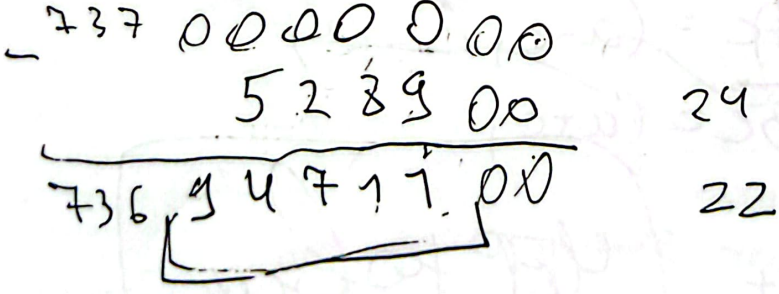 737 0000000
- 528900 24
736947110​0 22